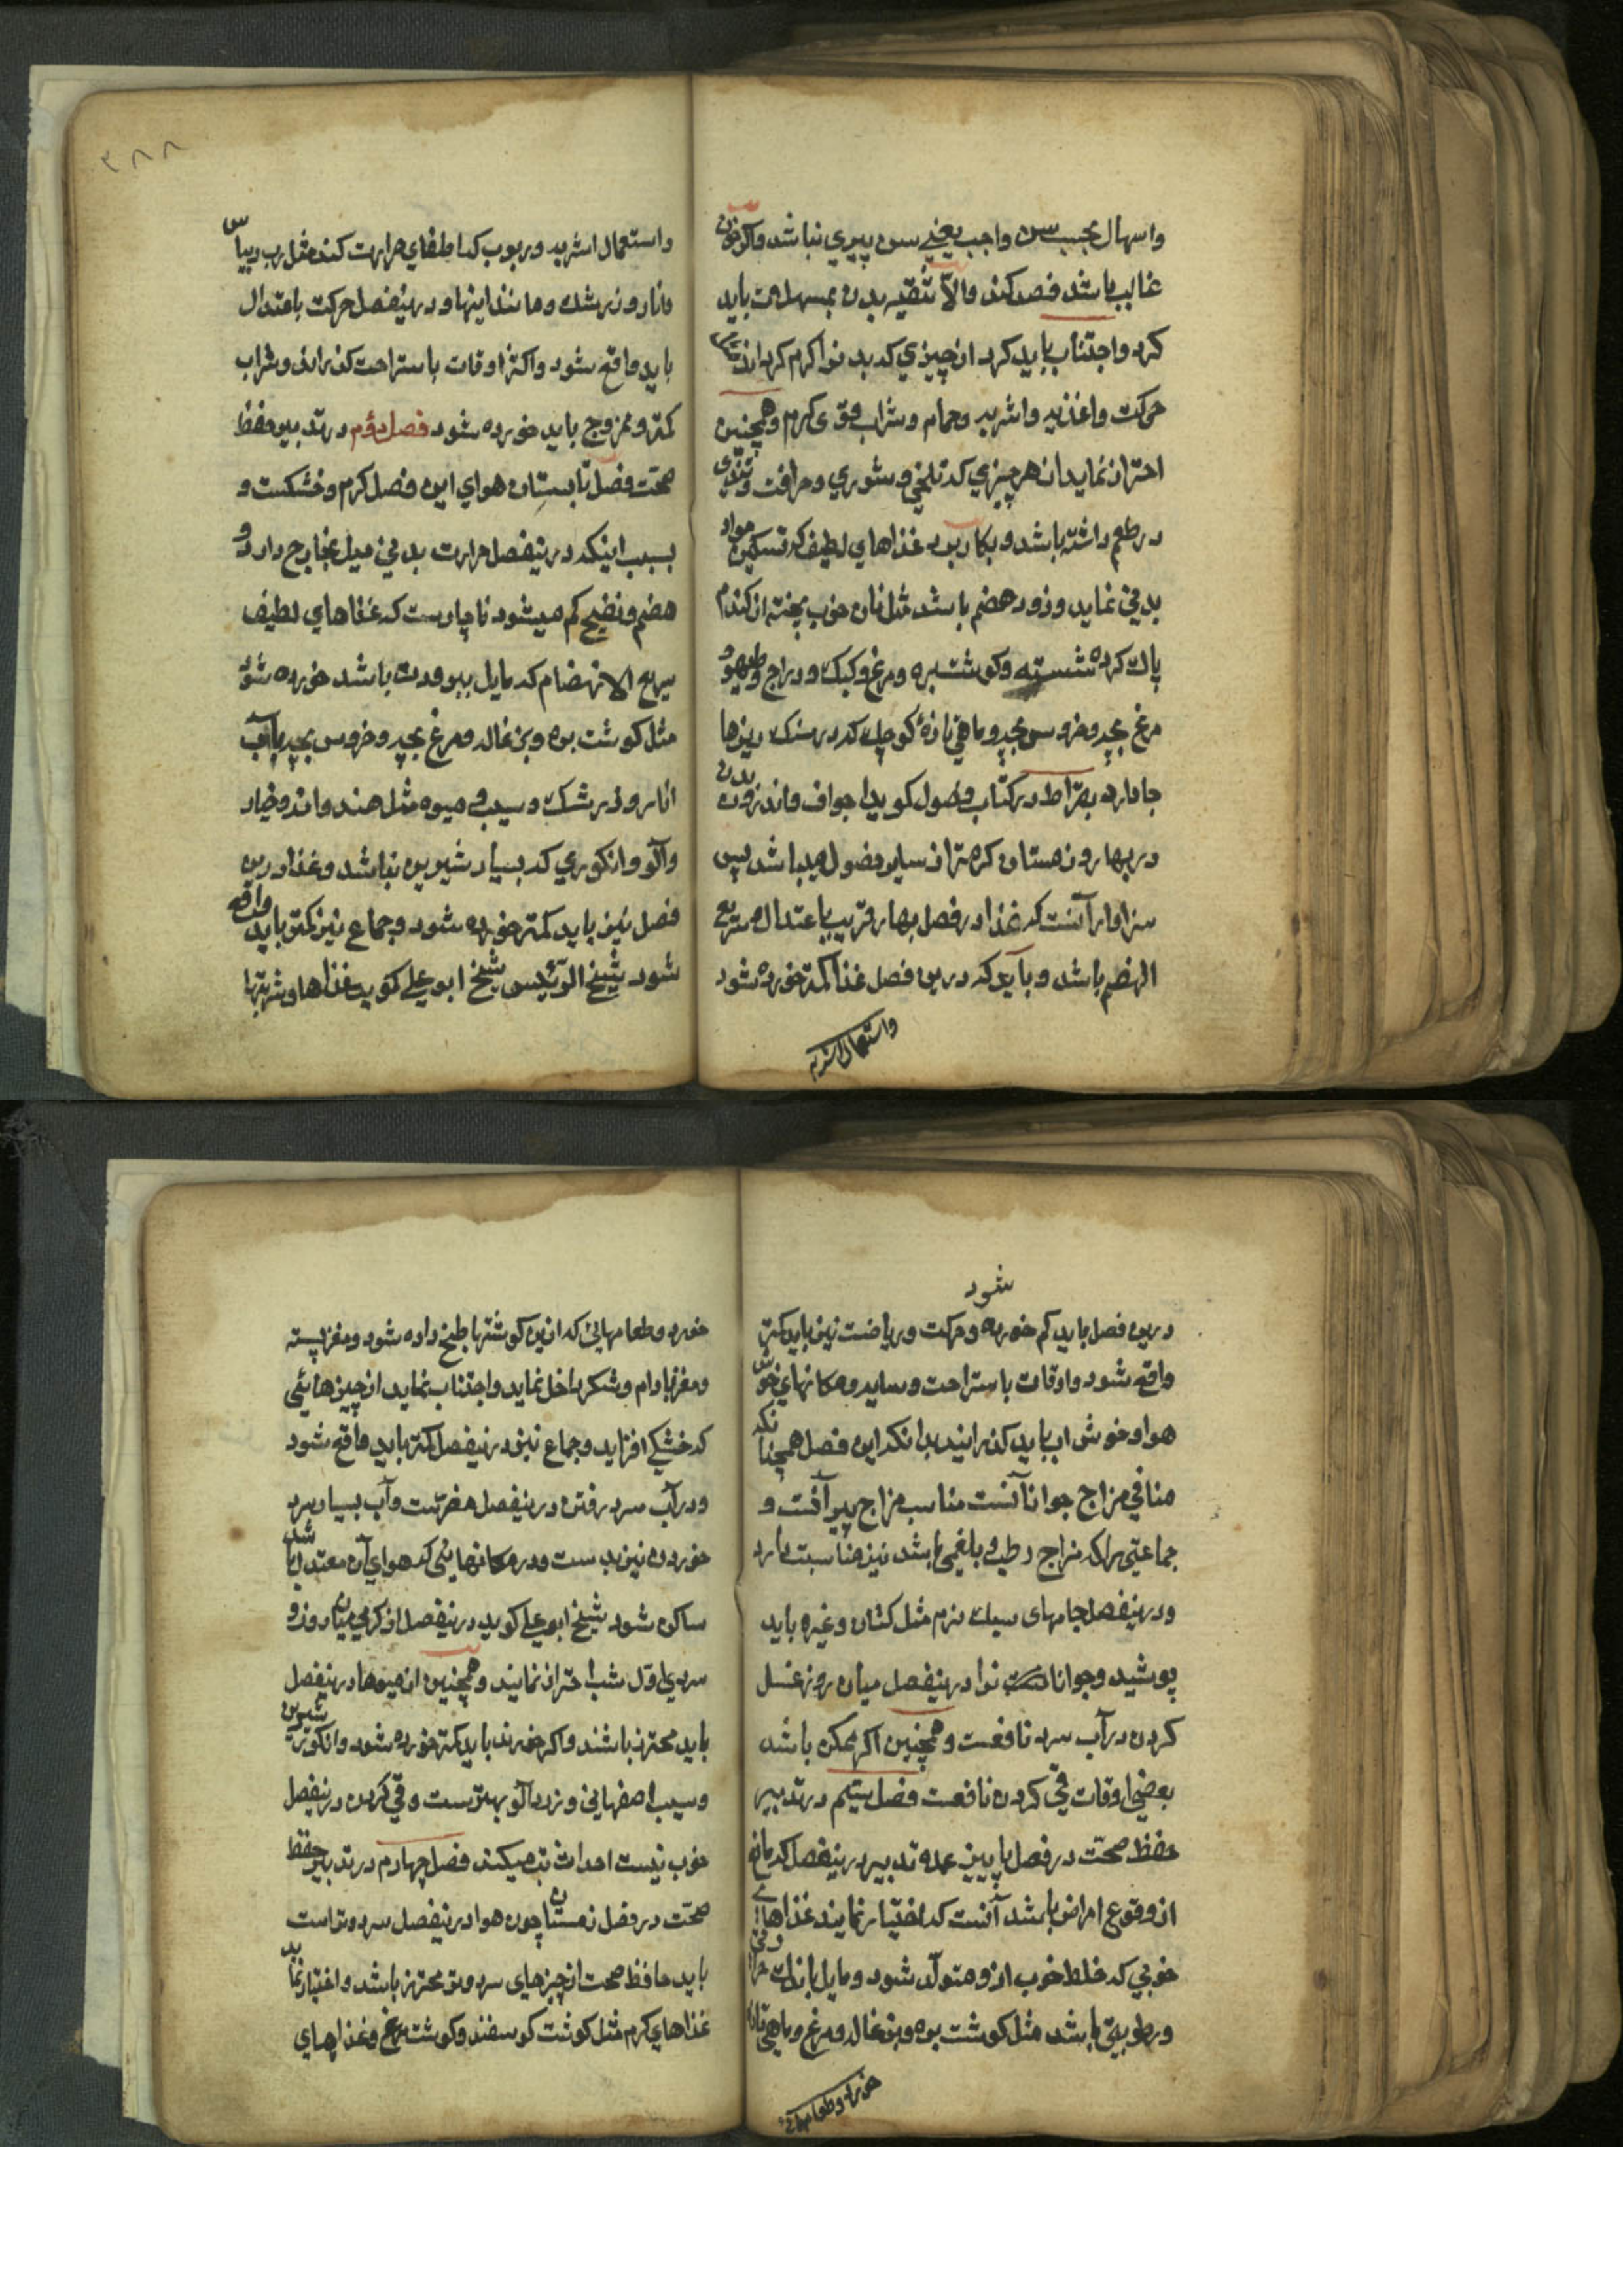 واسهال بحسب سن واجب یعنے سن پیری نباشد واکر خون
غالب باشد فصد کند والّا تنقیه بدن بمسهلات باید
کرد واجتناب باید کرد از چیزي که بدنرا کرم کرداند
حرکت واغذیه واشربه وحمام وشراب قوی کرم وهمچنین
احتراز نماید از هر چیزي که تلخی وشوري وحرافت وتندی
در طعم داشته باشد وبکار برد غذاهاي لطیف که تسکین مواد
بدني نماید وزود هضم باشد مثل نان خوب پخته از کندم
پاك کرده شسته وکوشت بره ومرغ وکبک ودراج وطیهو
مرغ بچه وخروس بچه وماهي تازهٔ کوچك که در سنک ریزها
جا دارد بقراط در کتاب فصول کوید اجواف واندرون بدن
در بهار وزمستان کرمتر از سایر فصول میباشد پس
سزاوار آنست که غذا در فصل بهار قریب باعتدال وسریع
الهضم باشد وباید که درین فصل غذا کمتر خورده شود
واستعمال اشربه
۳۸۸
واستعمال اشربه وربوب که اطفاي حرارت کند مثل رب ریباس
وانار وزرشك ومانند اینها ودرینفصل حرکت باعتدال
باید واقع شود واکثر اوقات باستراحت کذرانی وشراب
کمتر وممزوج باید خورده شود فصل دوّم در تدبیر حفظ
صحّت فصل تابستان هواي این فصل کرم وخشکست و
بسبب اینکه درینفصل حرارت بدني میل بخارج دارد و
هضم ونضج کم میشود ناچارست که غذاهاي لطیف
سریع الانهضام که مایل ببرودت باشد خورده شود
مثل کوشت بره وبزغاله ومرغ بچه وخروس بچه باآب
انار وزرشك وسیب ومیوه مثل هندوانه وخیار
وآلو وانکوري که بسیار شیرین نباشد وغذا درین
فصل نیز باید کمتر خورده شود وجماع نیز کمتر باید واقع
شود شیخ الرّئیس شیخ ابو علي کوید غذاها وشربتها
شود
درین فصل باید کم خورده وحرکت وریاضت نیز باید کمتر
واقع شود واوقات باستراحت وسایه ومکانهاي خوش
هوا وخوش اب باید کذرانید بدانکه این فصل همچنانکه
منافي مزاج جوانانست مناسب مزاج پیرآنست و
جماعتي را که مزاج رطب وبلغمي باشد نیز مناسبت دارد
ودرینفصل جامهای سبك نرم مثل کتان وغیره باید
پوشید وجوانانرا درینفصل میان روز غسل
کردن در آب سرد نافعست وهمچنین اکر ممکن باشد
بعضی اوقات قی کردن نافعست فصل سیّم در تدبیر
حفظ صحّت در فصل پاییز عمده تدبیر درینفصل که مانع
از وقوع امراض باشد آنست که اختیار نمایند غذاهاے
خوبي که خلط خوب ازو متولّد شود ومایل باندك حرارتی
ورطوبتی باشد مثل کوشت بره وبزغاله ومرغ وماهی تازه
خورد وطعامهائی
خورد وطعامهائی که ازین کوشتها طبخ داده شود ومغز پسته
ومغز بادام وشکر داخل نماید واجتناب نماید از چیزهائی
که خشکے افزاید وجماع نیز درینفصل کمتر باید واقع شود
ودر آب سرد رفتن درینفصل مضرّست وآب بسیار سرد
خوردن نیز بد ست ودر مکانهایئی که هوای آن معتدل باشد
ساکن شود شیخ ابو علي کوید درینفصل از کرمي میان روز و
سردی اوّل شب احتراز نمایند وهمچنین از میوها درینفصل
باید محترز باشند واکر خورند باید کمتر خورده شود وانکور شیرین
وسیب اصفهاني وزردآلو بهترست وقي کردن درینفصل
خوب نیست احداث تب میکند فصل چهارم در تدبیر حفظ
صحّت در فصل زمستان چون هوا درینفصل سرد وتراست
باید حافظ صحت از چیزهاي سرد وتر محترز باشد واختیار نماید
غذاهاي کرم مثل کوشت کوسفند وکوشت مرغ وغذاهاي